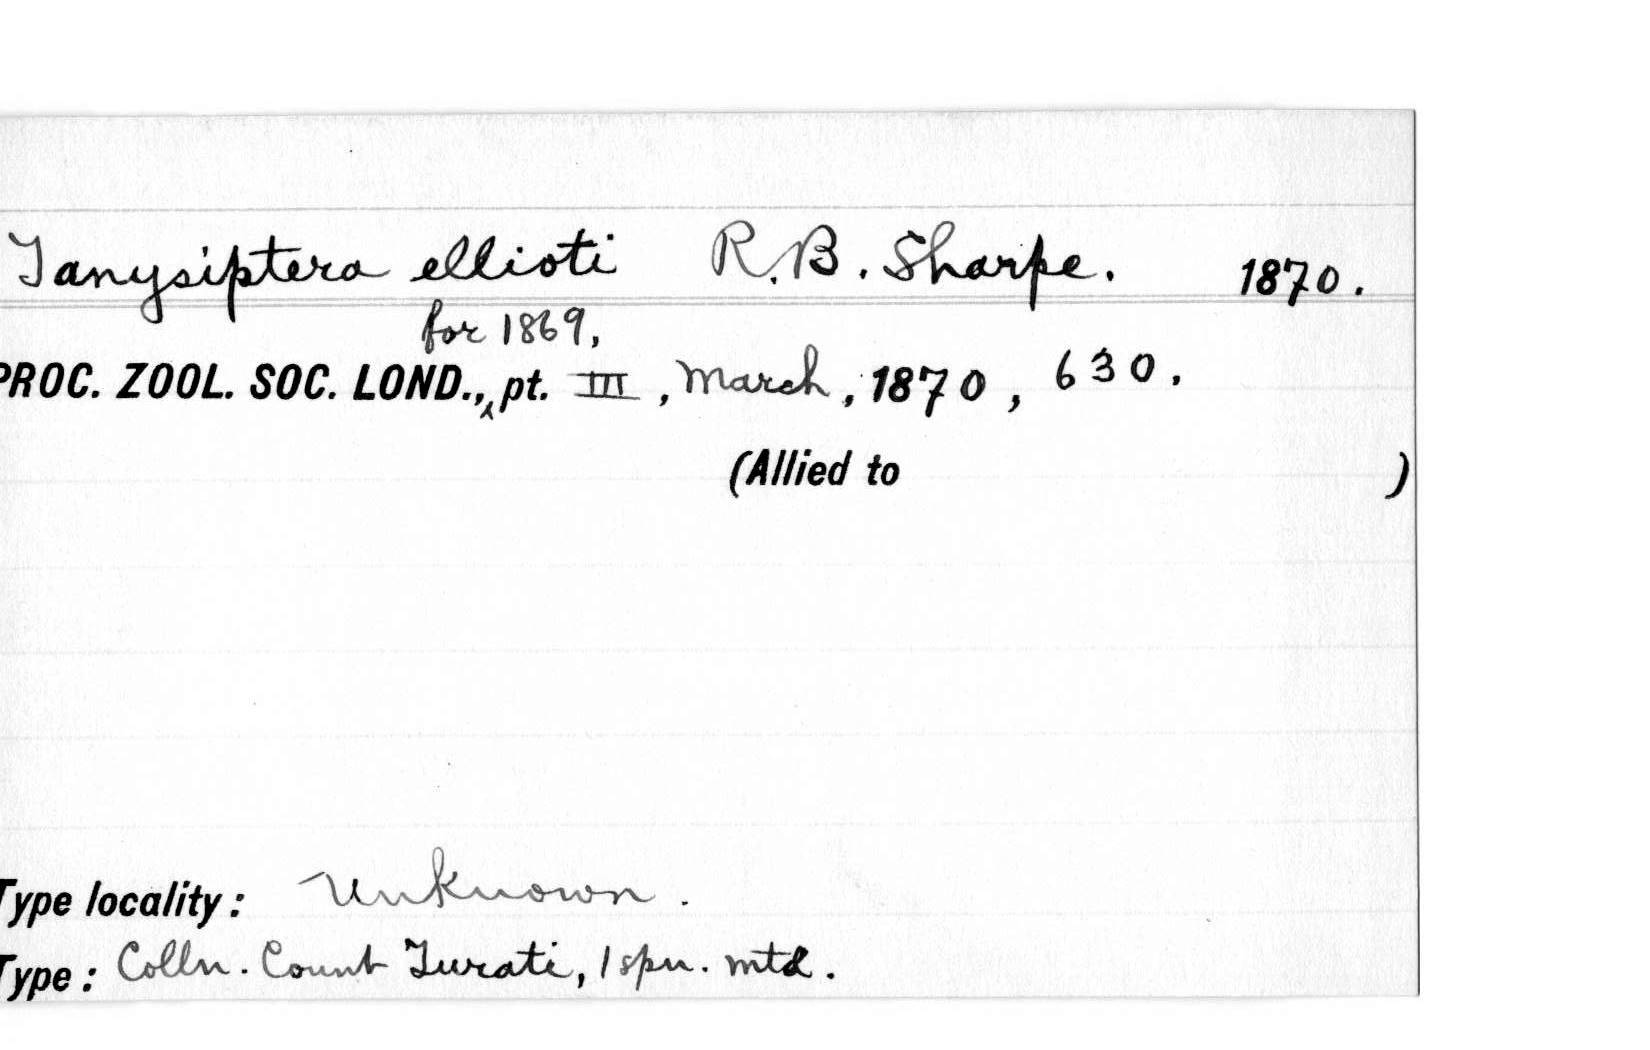 Tanysiptera ellioti R.B. Sharpe. 1870.
for 1869,
PROC. ZOOL. SOC. LOND., pt. III, March, 1870, 630.
(Allied to )
Type locality: Unknown.
Type: Colln. Count Turati, 1 spn. mtd.